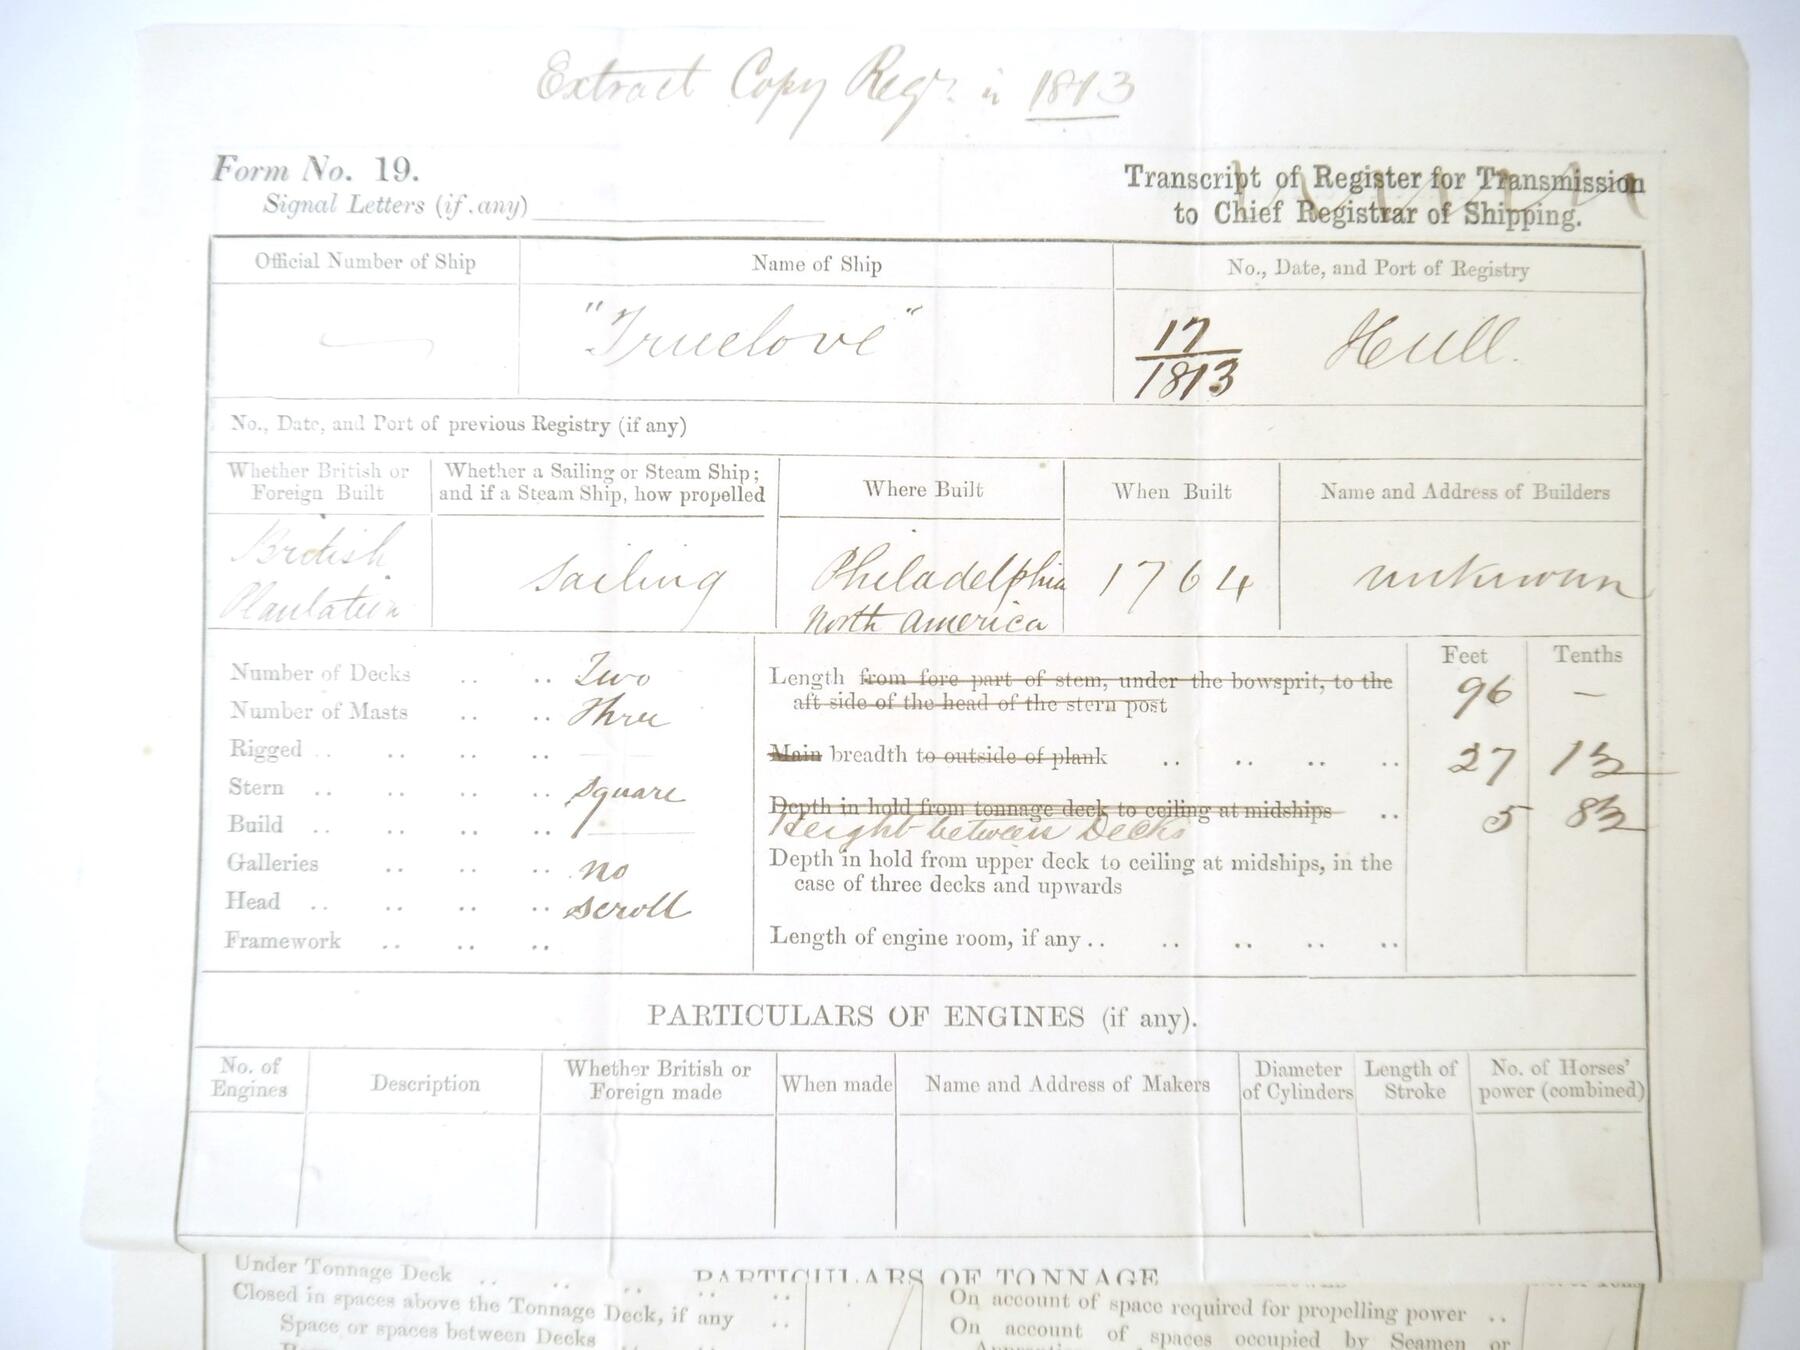 Extract Copy Regr. in 1813
Form No. 19.
Signal Letters (if any)
Transcript of Register for Transmission
to Chief Registrar of Shipping.
Official Number of Ship
Name of Ship
No., Date, and Port of Registry
"Truelove"
17/1813 Hull.
No., Date, and Port of previous Registry (if any)
Whether British or
Foreign Built
Whether a Sailing or Steam Ship;
and if a Steam Ship, how propelled
Where Built
When Built
Name and Address of Builders
British
Plantation
Sailing
Philadelphia
North America
1764
unknown
Feet Tenths
Number of Decks .. .. Two
Number of Masts .. .. Three
Rigged .. .. .. ..
Stern .. .. .. .. square
Build .. .. .. ..
Galleries .. .. .. no
Head .. .. .. .. scroll
Framework .. .. ..
Length from fore part of stem, under the bowsprit, to the
aft side of the head of the stern post 96 –
Main breadth to outside of plank .. .. .. .. 27 1½
Depth in hold from tonnage deck to ceiling at midships .. 5 8½
Height between Decks
Depth in hold from upper deck to ceiling at midships, in the
case of three decks and upwards
Length of engine room, if any .. .. .. .. ..
PARTICULARS OF ENGINES (if any).
No. of
Engines
Description
Whether British or
Foreign made
When made
Name and Address of Makers
Diameter
of Cylinders
Length of
Stroke
No. of Horses'
power (combined)
PARTICULARS OF TONNAGE
Under Tonnage Deck .. .. .. .. ..
Closed in spaces above the Tonnage Deck, if any ..
Space or spaces between Decks
On account of space required for propelling power ..
On account of spaces occupied by Seamen or